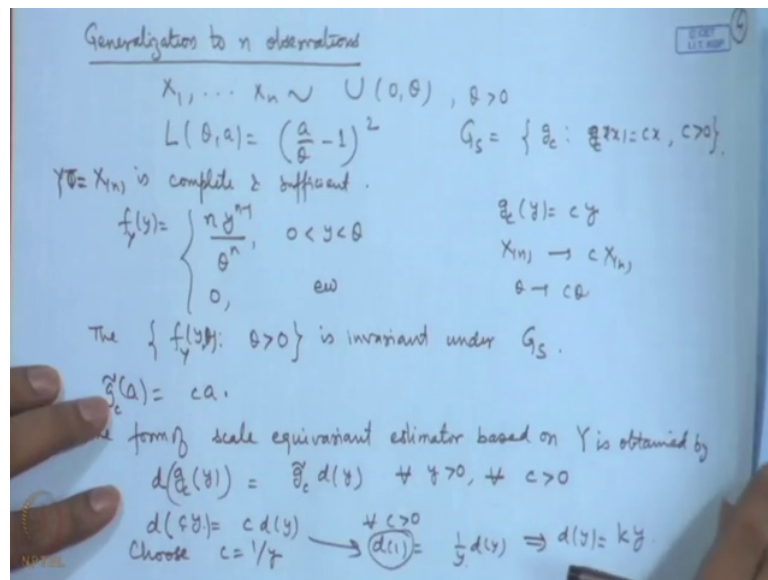 Generalization to n observations
© CET
I.I.T. KGP
X₁, ... Xₙ ~ U(0,θ), θ>0
L(θ,a) = (a/θ - 1)²    G_S = { g_c : g_c(x) = cx, c>0 }
Y = X₍ₙ₎ is complete & sufficient.
f_Y(y) = { n yⁿ⁻¹/θⁿ, 0 < y < θ    g_c(y) = cy
X₍ₙ₎ → c X₍ₙ₎
0, ew    θ → cθ
The { f_Y(y,θ): θ>0 } is invariant under G_S.
g̃_c(a) = ca.
form of scale equivariant estimator based on Y is obtained by
d(g_c(y)) = g̃_c d(y) ∀ y>0, ∀ c>0
d(cy) = c d(y) ∀ c>0
Choose c = 1/y → d(1) = 1/y d(y) ⇒ d(y) = ky.
NPTEL